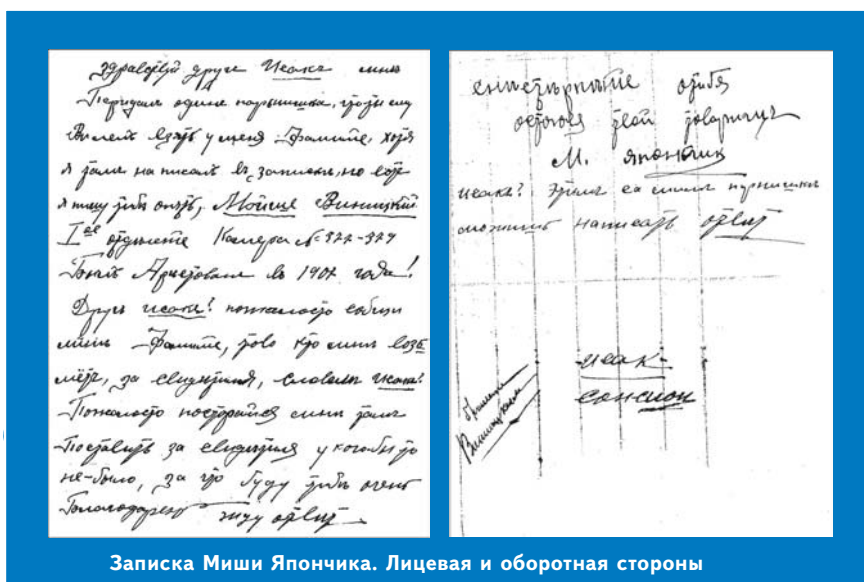 Здравствуй друг Исакъ минѣ
Передалъ одинъ парнишка, что ты ему
Вилелъ взять у меня Фамилие, хотя
я тамъ написалъ въ записки, но ещё
я пишу тибѣ опять, Мойше Виницкий
I ое отделение Камера № 377-379
Былъ Арестованъ въ 1907 года!
Другъ Исакъ! пожалосто
минѣ Фамилие, того кто минѣ возь
мётъ, за свидителя, словомъ Исакъ!
Пожалосто постарайся минѣ тамъ
Поставить за свидителя у кого бы то
не-было, за что буду тибѣ очень
Благодаренъ жду ответ
отъ тибя
остаюсь твой товарищъ
М. Япончик
Исакъ? съ симъ парнишкомъ
можишъ написать ответ
Исак
Виницкий
Записка Миши Япончика. Лицевая и оборотная стороны